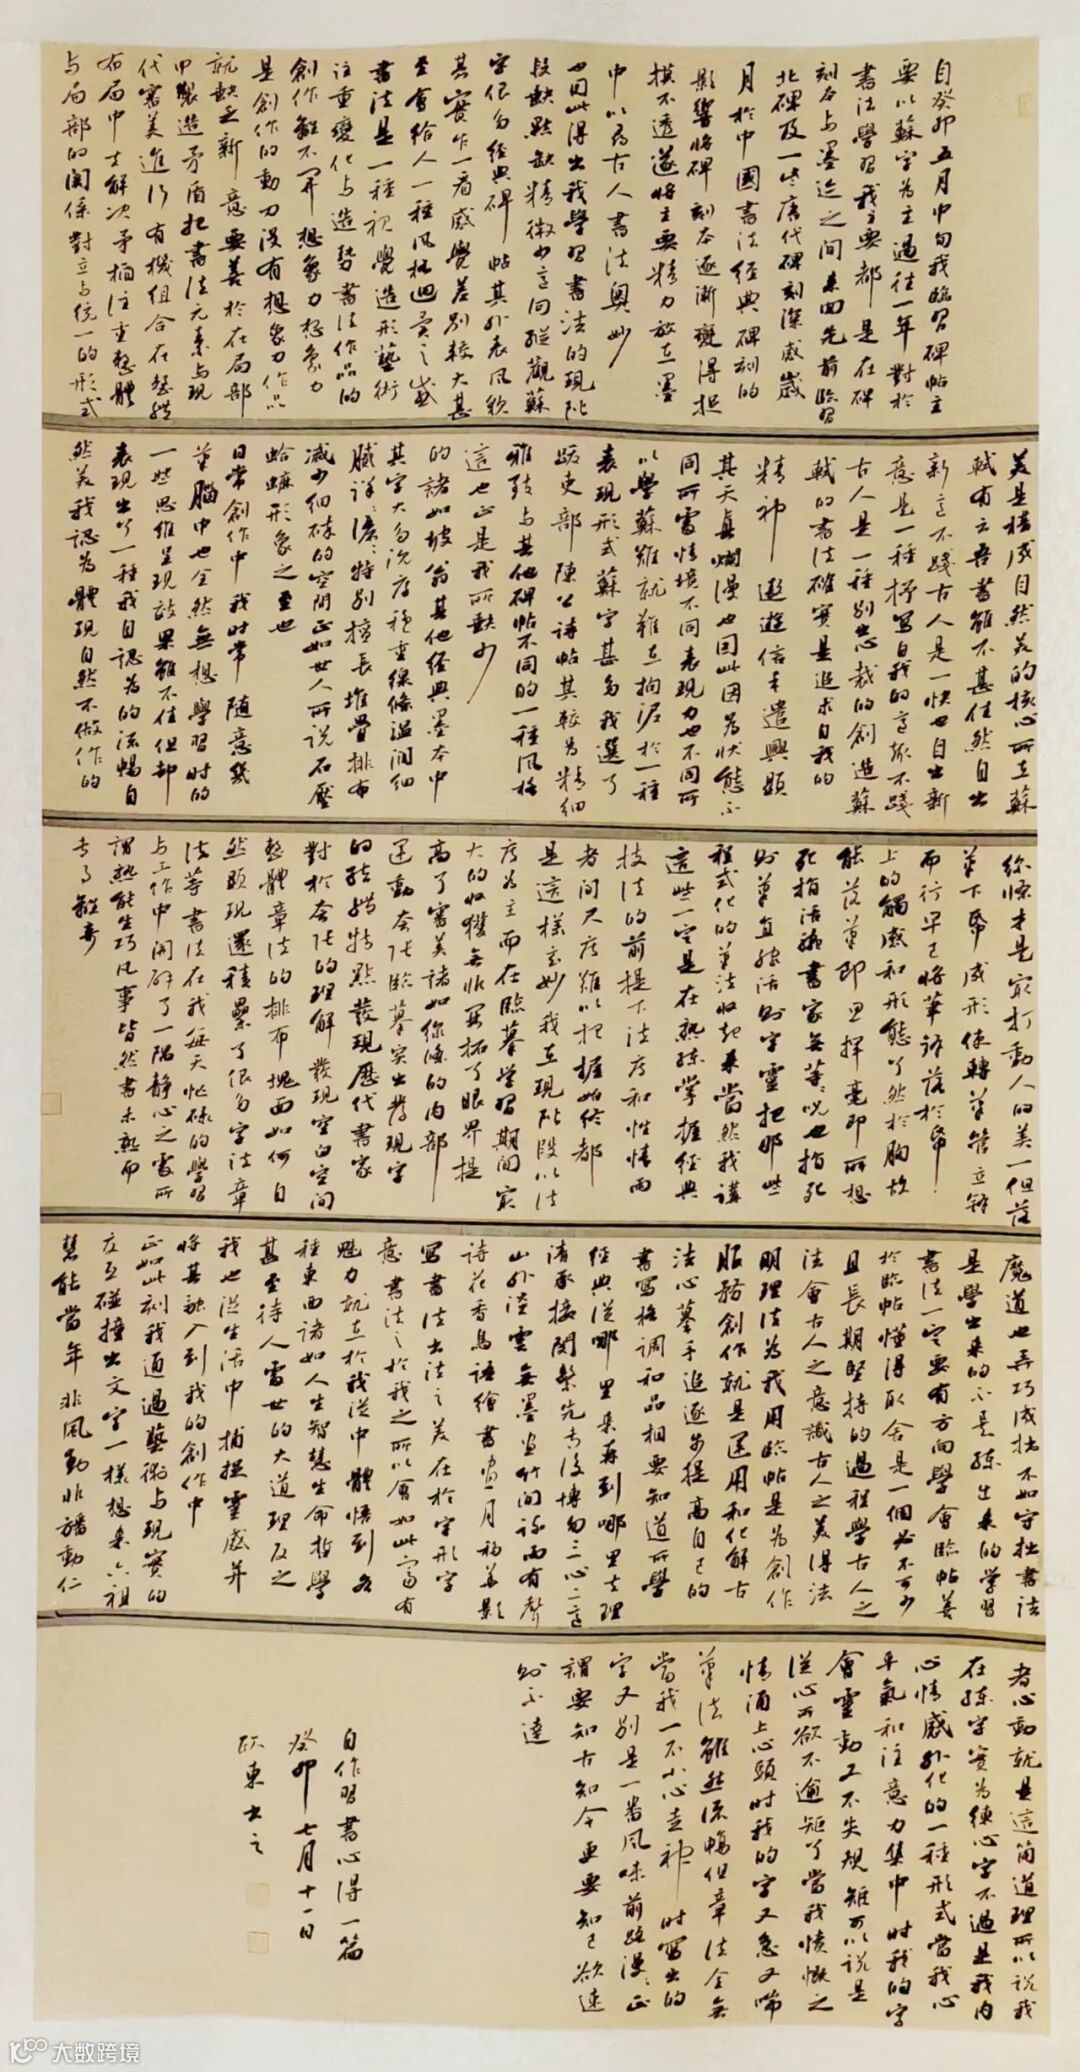 自癸卯五月中旬我臨習碑帖主
要以蘇字為主過往一年對於
書法學習我主要都是在碑
刻本与墨迹之間来回先前臨習
北碑及一些唐代碑刻深感歲
月於中國書法經典碑刻的
影響將碑刻本逐漸變得捉
摸不透遂將主要精力放在墨
中以窮古人書法奧妙
也因此得出我學習書法的現階
段缺點缺精微少意同縱觀蘇
字很多經典碑帖其外表風貌
其實乍一看感覺差別較大甚
至會給人一種風格迥異之感
書法是一種視覺造形藝術
注重變化与造勢書法作品的
創作離不開想象力想象力
是創作的動力沒有想象力作品
就缺乏新意要善於在局部
中製造矛盾把書法元素与現
代審美進行有機組合在整體
布局中去解決矛盾注重整體
与局部的関係對立与統一的形式
美是構成自然美的核心所在蘇
軾有云吾書雖不甚佳然自出
新意不踐古人是一快也自出新
意是一種抒寫自我的意派不踐
古人是一種別出心裁的創造蘇
軾的書法確實是追求自我的
精神 遨遊信手遣興顯
其天真爛漫也因此因為狀態不
同所處情境不同表現力也不同所
以學蘇雖就難在拘泥於一種
表現形式蘇字甚多我選了
跋吏部陳公詩帖其較為精細
雅致与其他碑帖不同的一種風格
這也正是我所缺少
的諸如坡翁其他經典墨本中
其字大多沉厚穩重線條溫潤細
膩詳詳濃濃特別擅長堆疊排布
減少細碎的空間正如世人所說石壓
蛤蟆形象之至也
日常創作中我时常随意幾
筆腦中也全然無想學習时的
一些思維呈現效果雖不佳但却
表現出了一種我自認为的流暢自
然美我認为體現自然不做作的
線條才是最打動人的美一但落
筆下帋成形使轉筆管立鋒
而行早已將筆訴落於帋
上的觸感和形態了然於胸故
能落筆即思揮毫即所想
死指活腕書家無等呪也指死
則筆直腕活則字靈把那些
程式化的筆法收起来當然我講
這些一定是在熟練掌握經典
技法的前提下法度和性情兩
者間尺度難以把握始終都
是這樣玄妙我在現階段以法
度為主而在臨摹學習期間最
大的收獲無非開拓了眼界提
高了審美諸如線條的內部
運動夸張臨摹突出舊現字
的結體特點發現歷代書家
對於夸張的理解發現空白空間
整體章法的排布塊面如何自
然顯現還積累了很多字法章
法等書法在我每天忙碌的學習
与工作中開辟了一隅静心之處所
謂熟能生巧凡事皆然書未熟而
去了離奇
魔道也弄巧成拙不如守拙書法
是學出来的不是練出来的學習
書法一定要有方向學會臨帖善
於臨帖懂得取舍是一個必不可少
且長期堅持的過程學古人之
法會古人之意識古人之美得法
明理法為我用臨帖是為創作
服務創作就是運用和化解古
法心摹手追逐步提高自己的
書写格調和品相要知道所學
經典從哪里来再到哪里去理
清承接関繫先專後博勿三心二意
山外淩雲無墨畫竹間詠雨有聲
詩花香鳥語繪書畫月移美影
寫書法出法之美在於字形字
意書法之於我之所以會如此富有
魁力就在於我從中體悟到各
種東西諸如人生智慧生命哲學
甚至待人處世的大道理反之
我也從生活中捕捉靈感并
將其融入到我的創作中
正如此刻我通過藝術与現實的
交互碰撞出文字一樣想来六祖
慧能當年非風動非旛動仁
者心動就是這箇道理所以說我
在練字實為練心字不過是我內
心情感外化的一種形式當我心
平氣和注意力集中时我的字
會靈動又不失規矩可以說是
從心所欲不逾矩了當我憤慨之
情涌上心頭时我的字又急又喘
筆法雖然流暢但章法全無
當我一不小心走神时寫出的
字又別是一番風味前路漫漫正
謂要知古知今更要知己欲速
則不達
自作習書心得一篇
癸卯七月十一日
欧東書之
大数跨境